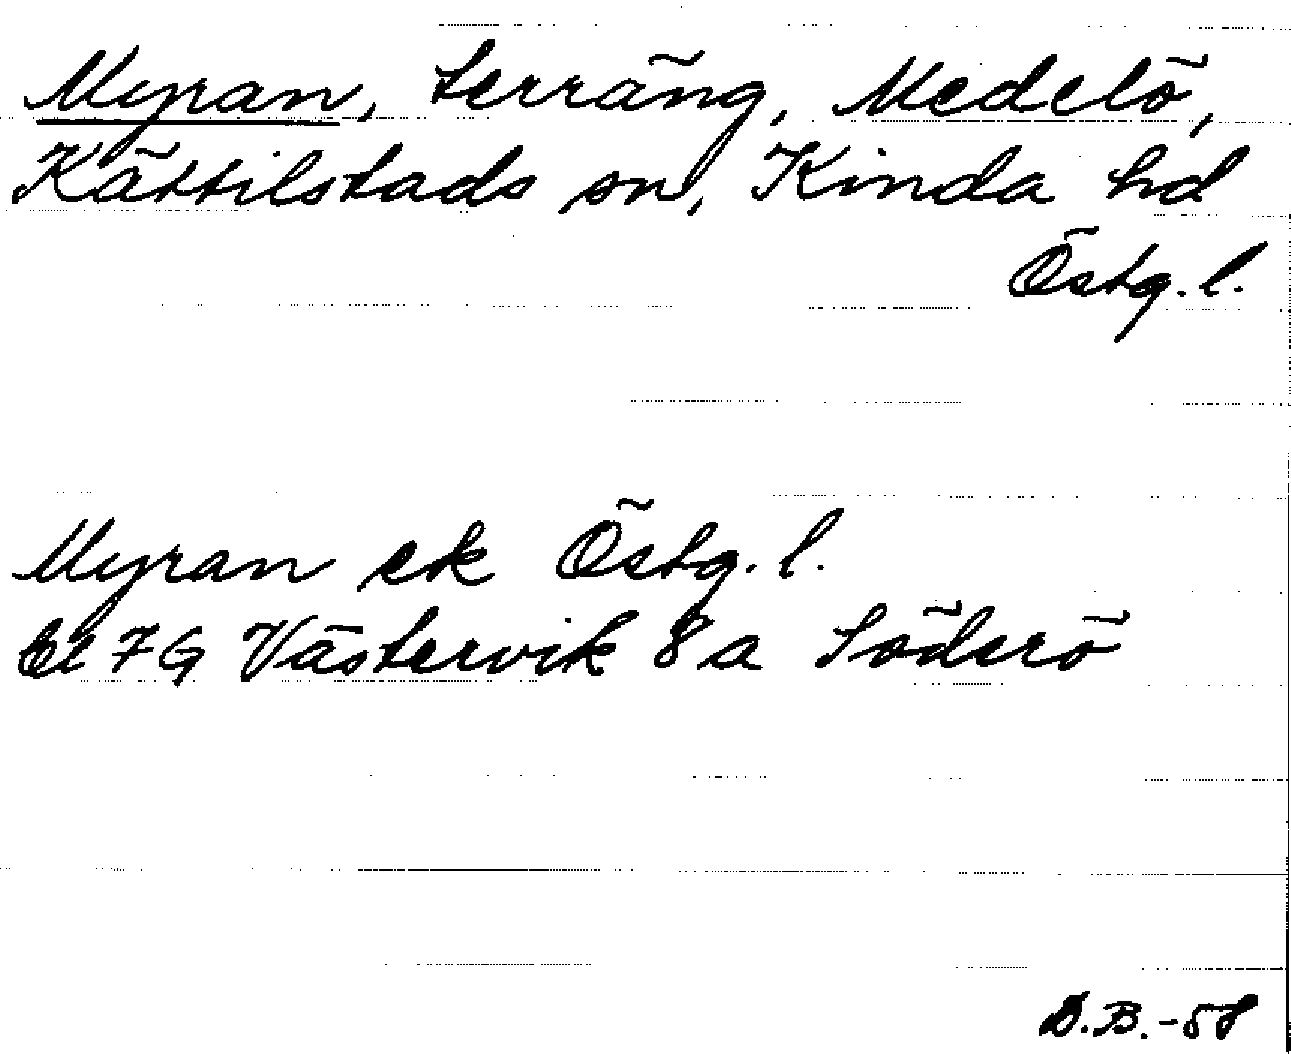 Myran, terräng, Medelö,
Kättilstads sn, Kinda hd
Östg. l.
Myran ek Östg. l.
Bl 7G Västervik 8a Söderö
D.B.-58